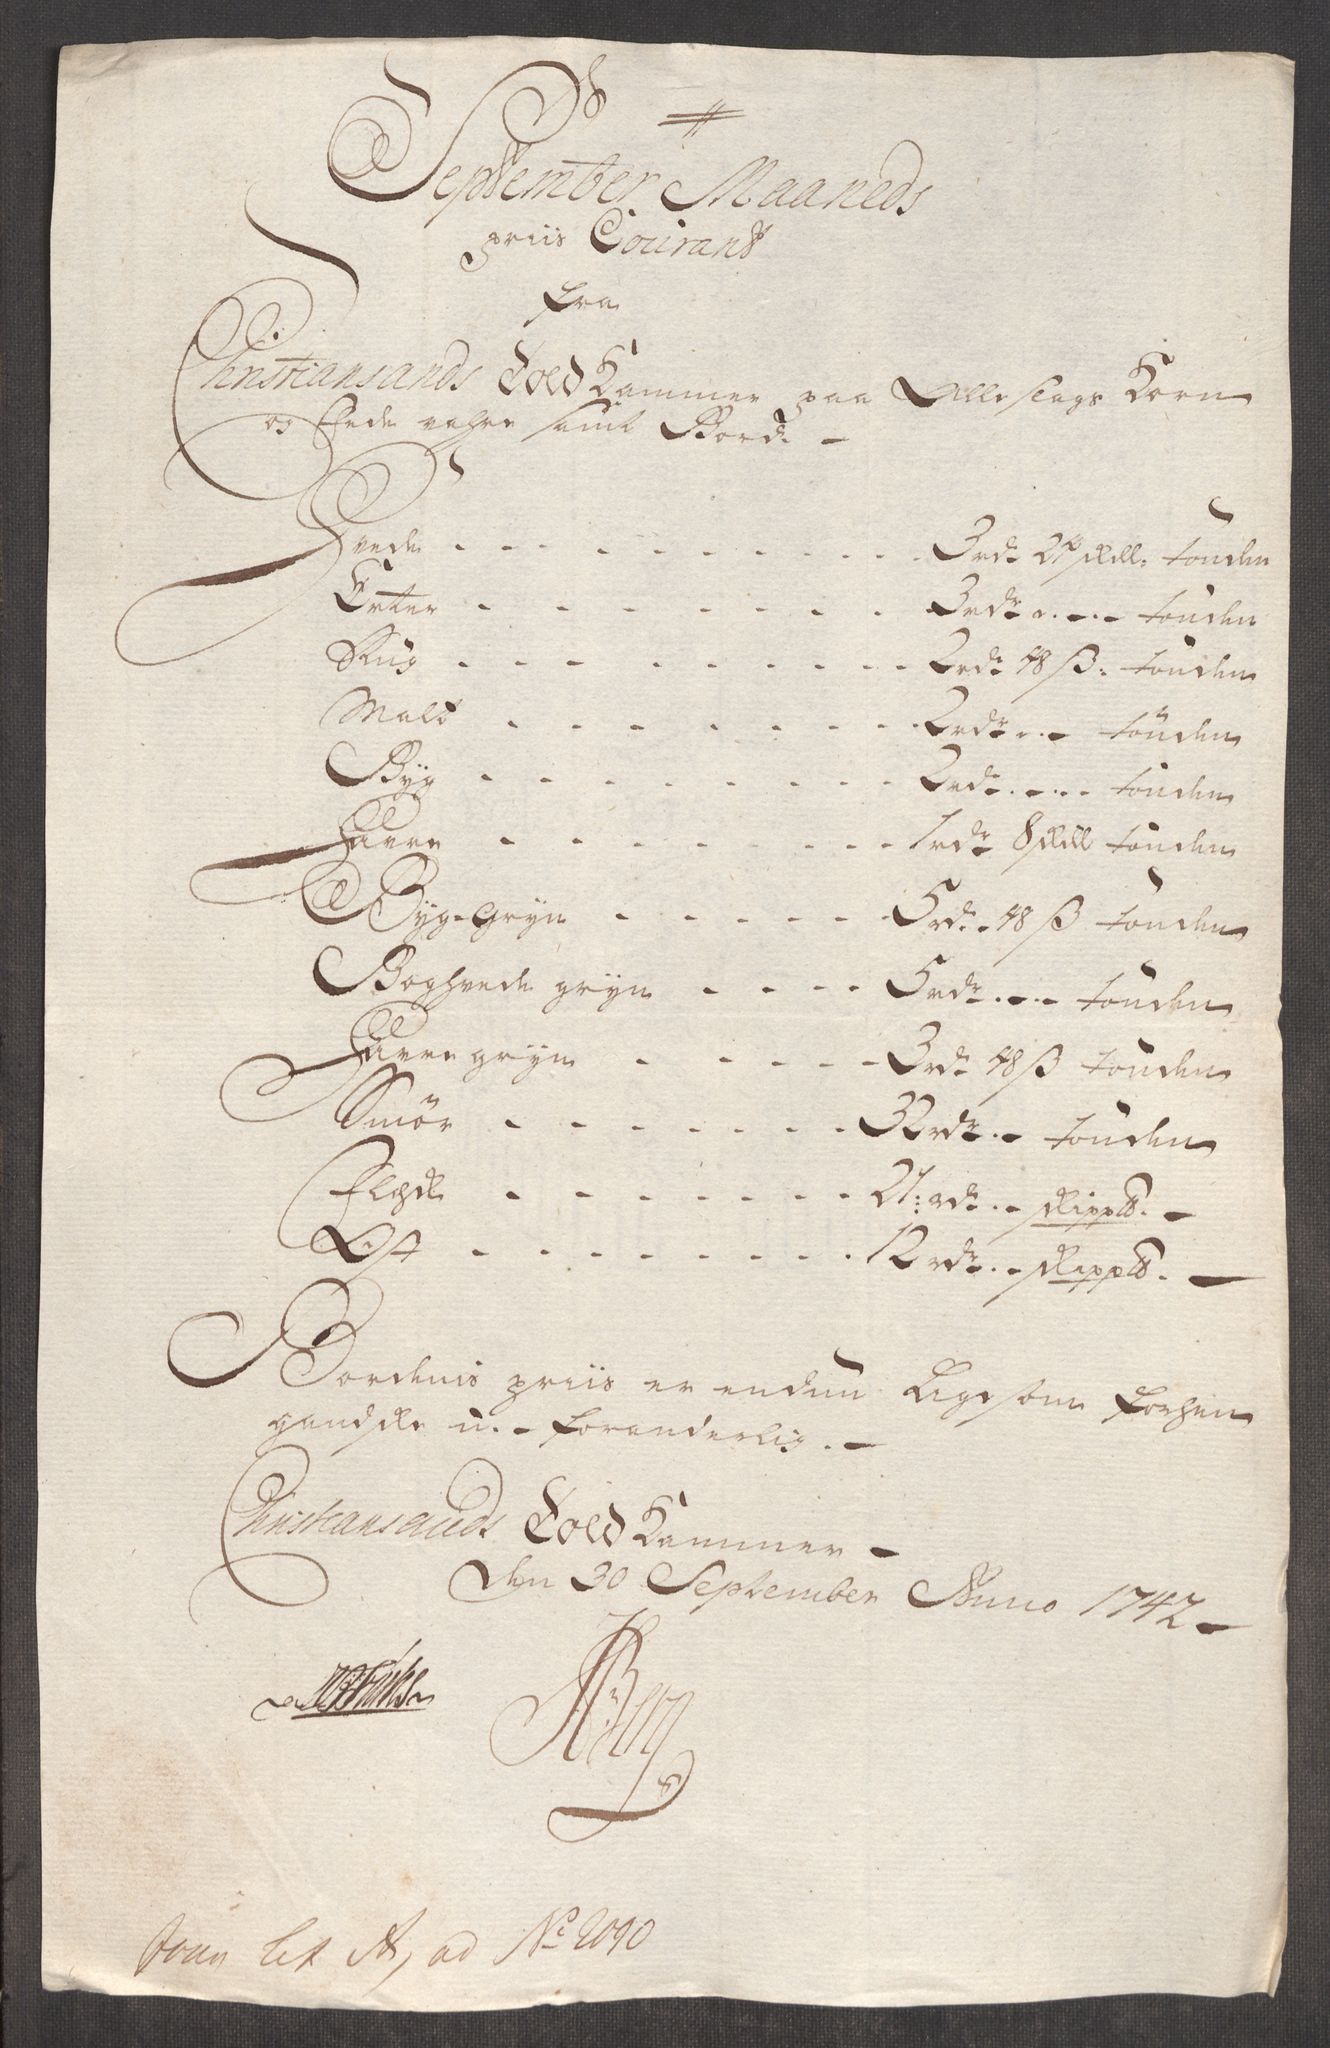 September Maaneds
priis Courant
fra
Christiansands Told Kammer paa Alle slags Korn
og fede vahre samt Bord. -
Hvede . . . . . . . . . . 3 rdr 24 skill: tonden
Erter . . . . . . . . 3 rdr . . . . tonden
Rug . . . . . . . . . 2 rdr 48 ß: tonden
Malt . . . . . . . . 2 rdr . . . tönden
Byg . . . . . . . . 2 rdr . . . . tonden
Havre . . . . . . . . 1 rdr 8 skill tonden
Byg-Gryn . . . . . 5 rdr. 48 ß tonden
Boghvede gryn . . . . 5 rdr . . . . tonden
Havre gryn . . . . . 3 rdr 48 ß tonden
Smør . . . . . . . 32 rdr . . tonden
Flesk . . . . . . . 21: rdr . . skippd. -
Ost . . . . . . . . 12 rdr . . skippd. -
Bordenis priis er endnu Lige som forhen
gandske u. - foranderlig. -
Christiansands Told Kammer -
den 30 September Anno 1742 -
lit A, ad No 2090